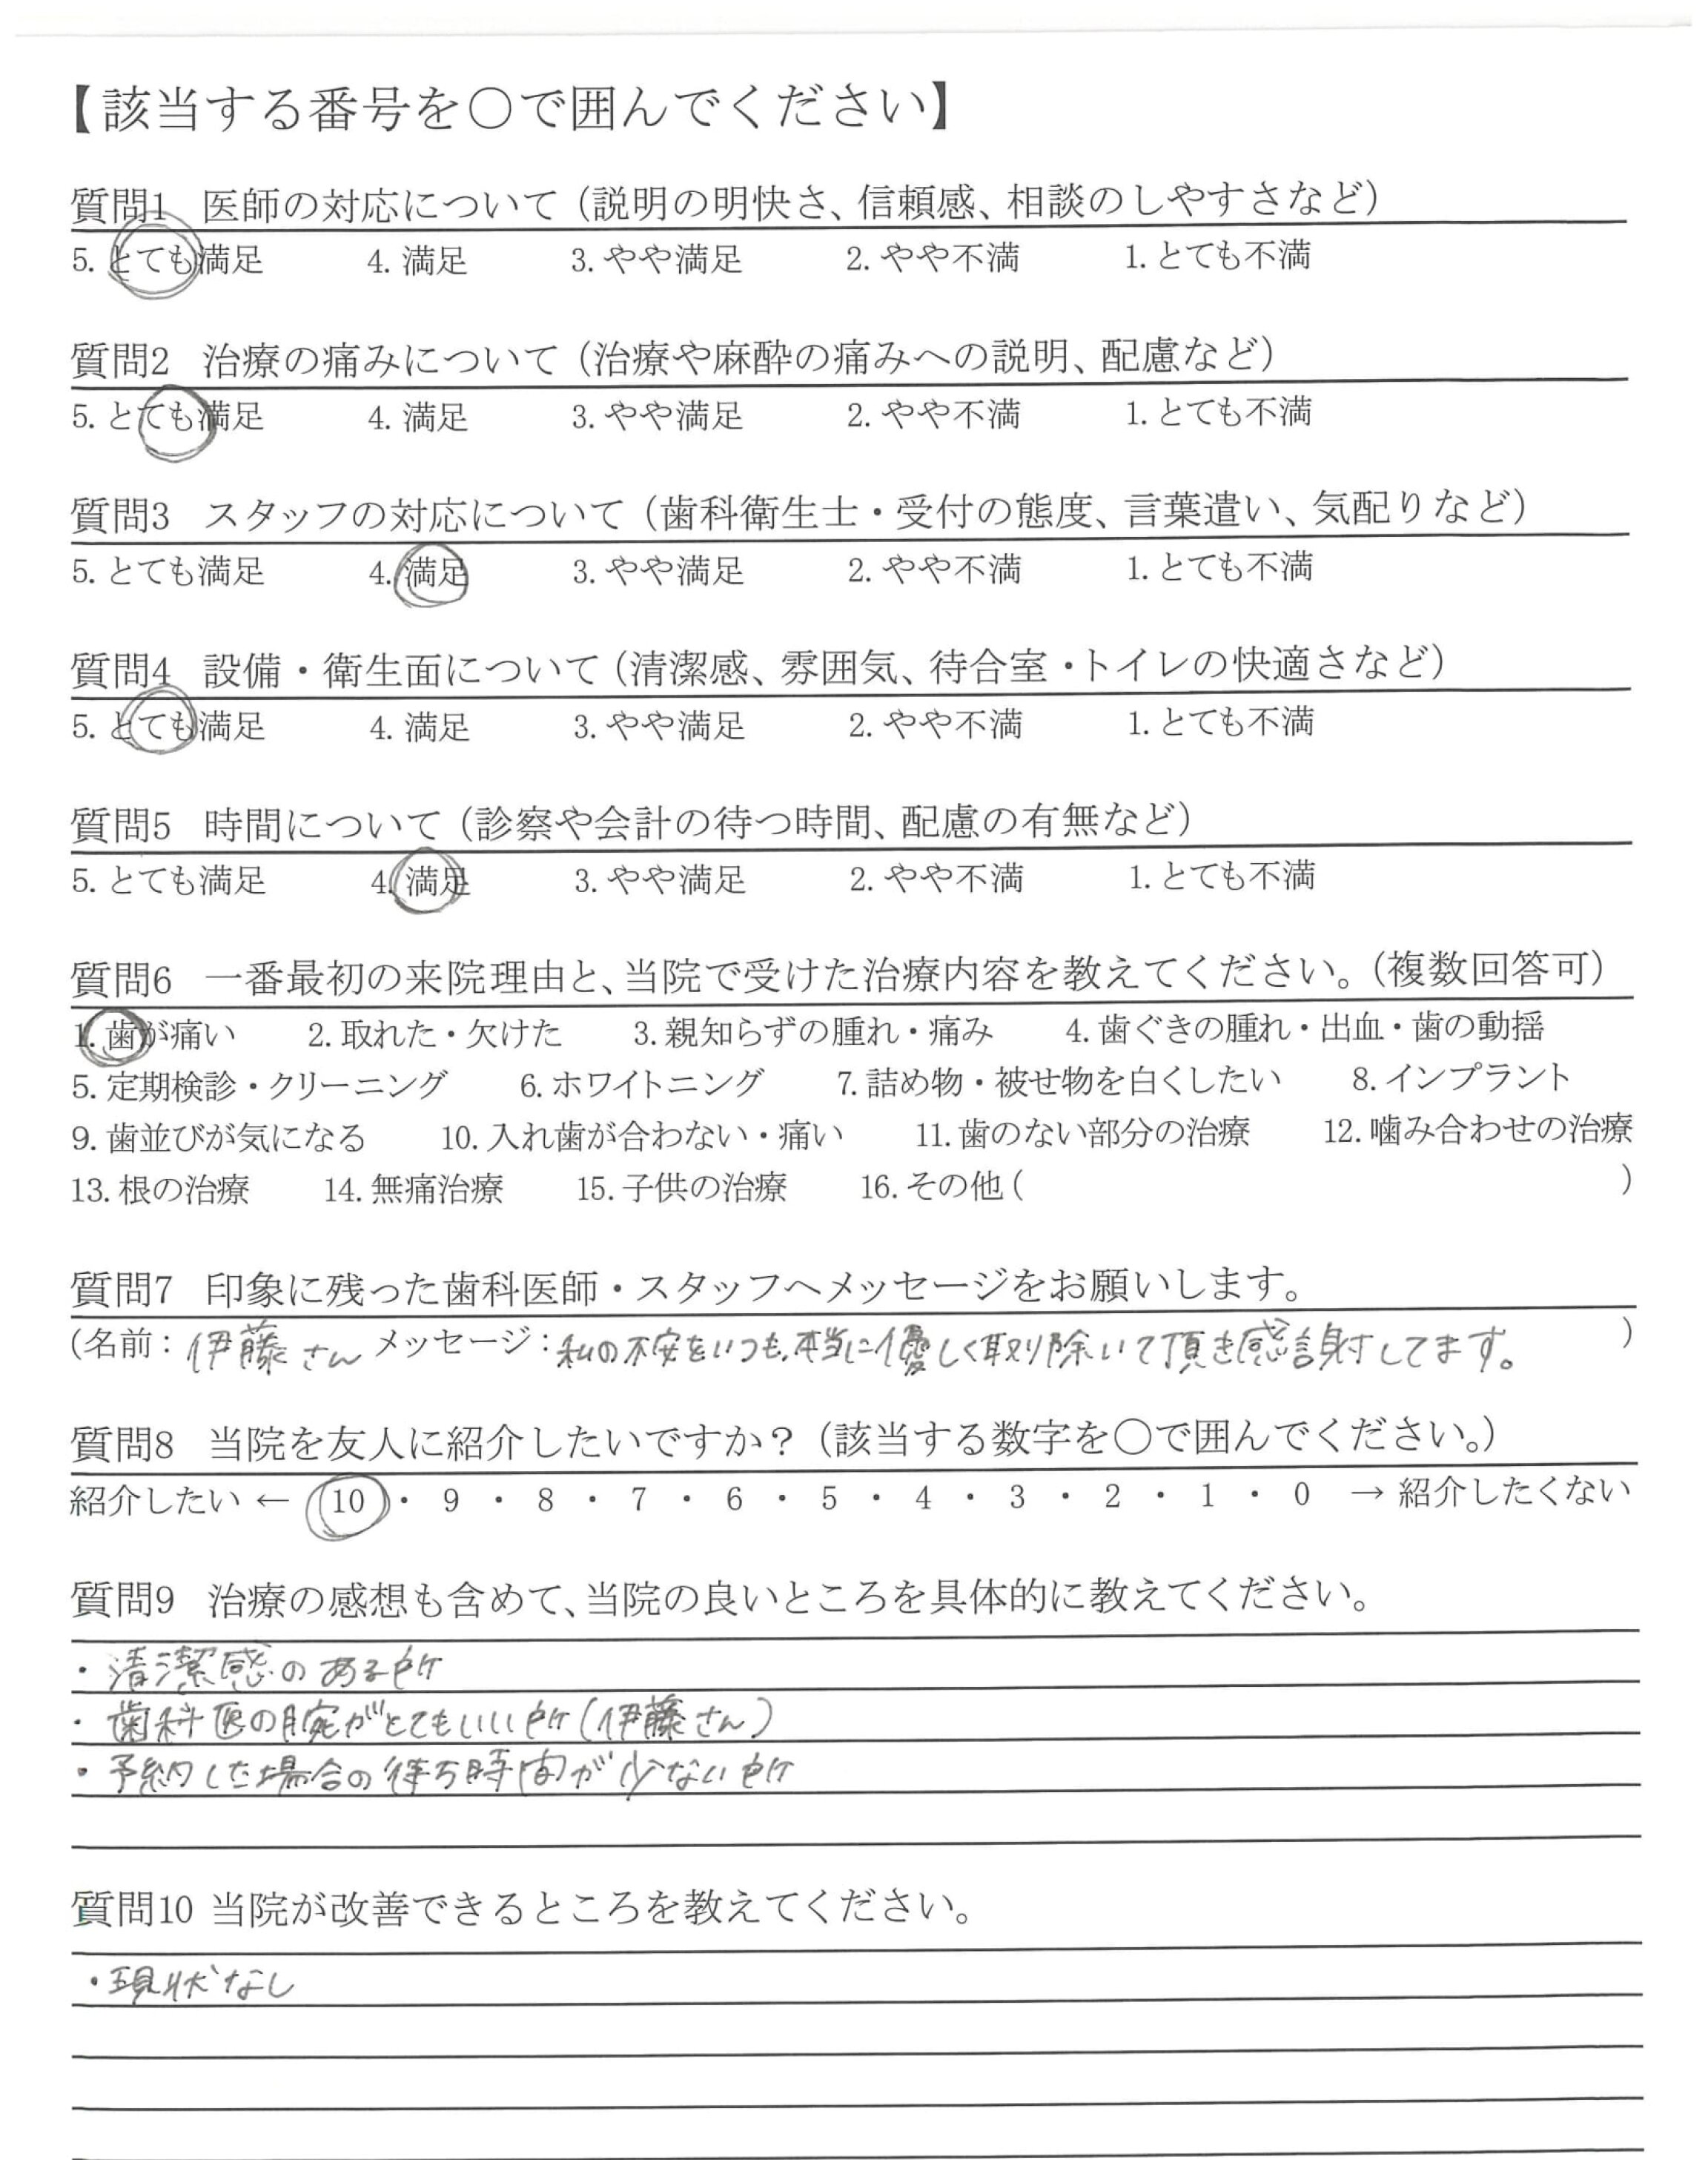 【該当する番号を○で囲んでください】
質問1 医師の対応について（説明の明快さ、信頼感、相談のしやすさなど）
5. とても満足 4. 満足 3. やや満足 2. やや不満 1. とても不満
質問2 治療の痛みについて（治療や麻酔の痛みへの説明、配慮など）
5. とても満足 4. 満足 3. やや満足 2. やや不満 1. とても不満
質問3 スタッフの対応について（歯科衛生士・受付の態度、言葉遣い、気配りなど）
5. とても満足 4. 満足 3. やや満足 2. やや不満 1. とても不満
質問4 設備・衛生面について（清潔感、雰囲気、待合室・トイレの快適さなど）
5. とても満足 4. 満足 3. やや満足 2. やや不満 1. とても不満
質問5 時間について（診察や会計の待つ時間、配慮の有無など）
5. とても満足 4. 満足 3. やや満足 2. やや不満 1. とても不満
質問6 一番最初の来院理由と、当院で受けた治療内容を教えてください。（複数回答可）
1. 歯が痛い 2. 取れた・欠けた 3. 親知らずの腫れ・痛み 4. 歯ぐきの腫れ・出血・歯の動揺
5. 定期検診・クリーニング 6. ホワイトニング 7. 詰め物・被せ物を白くしたい 8. インプラント
9. 歯並びが気になる 10. 入れ歯が合わない・痛い 11. 歯のない部分の治療 12. 噛み合わせの治療
13. 根の治療 14. 無痛治療 15. 子供の治療 16. その他（ ）
質問7 印象に残った歯科医師・スタッフへメッセージをお願いします。
（名前：伊藤さん メッセージ：私の不安をいつも、本当に優しく取り除いて頂き感謝してます。）
質問8 当院を友人に紹介したいですか？（該当する数字を○で囲んでください。）
紹介したい ← 10 ・ 9 ・ 8 ・ 7 ・ 6 ・ 5 ・ 4 ・ 3 ・ 2 ・ 1 ・ 0 → 紹介したくない
質問9 治療の感想も含めて、当院の良いところを具体的に教えてください。
・清潔感のある所
・歯科医の腕がとてもいい所（伊藤さん）
・予約した場合の待ち時間が少ない所
質問10 当院が改善できるところを教えてください。
・現状なし